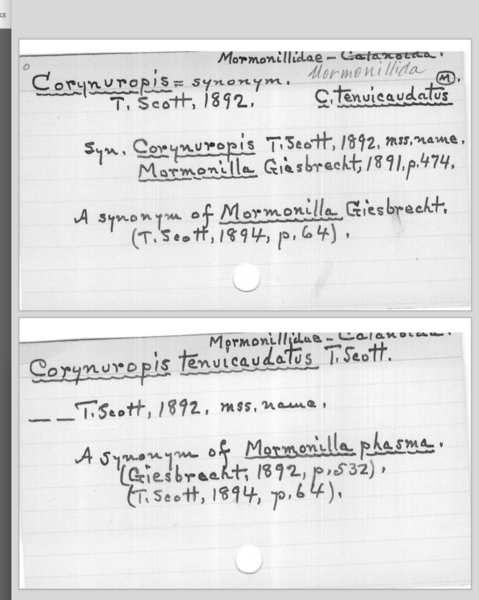 ks
Mormonillidae - Calanoida.
Mormonillida
Corynuropis = synonym. M.
T. Scott, 1892. C. tenuicaudatus
Syn. Corynuropis T. Scott, 1892, mss. name.
Mormonilla Giesbrecht, 1891, p. 474.
A synonym of Mormonilla Giesbrecht.
(T. Scott, 1894, p. 64).
Mormonillidae - Calanoida.
Corynuropis tenuicaudatus T. Scott.
— — T. Scott, 1892. mss. name.
A synonym of Mormonilla phasma.
(Giesbrecht, 1892, p. 532).
(T. Scott, 1894, p. 64).